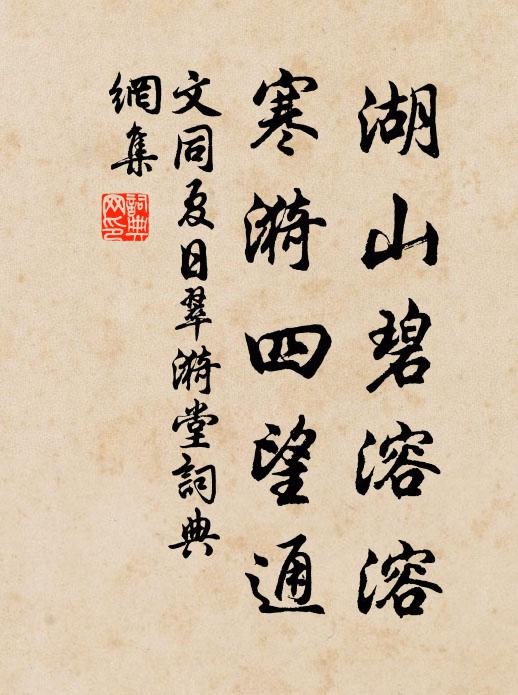 湖山碧溶溶
寒漪四望通
文同夏日翠漪堂詞典
網集
詞典
网印